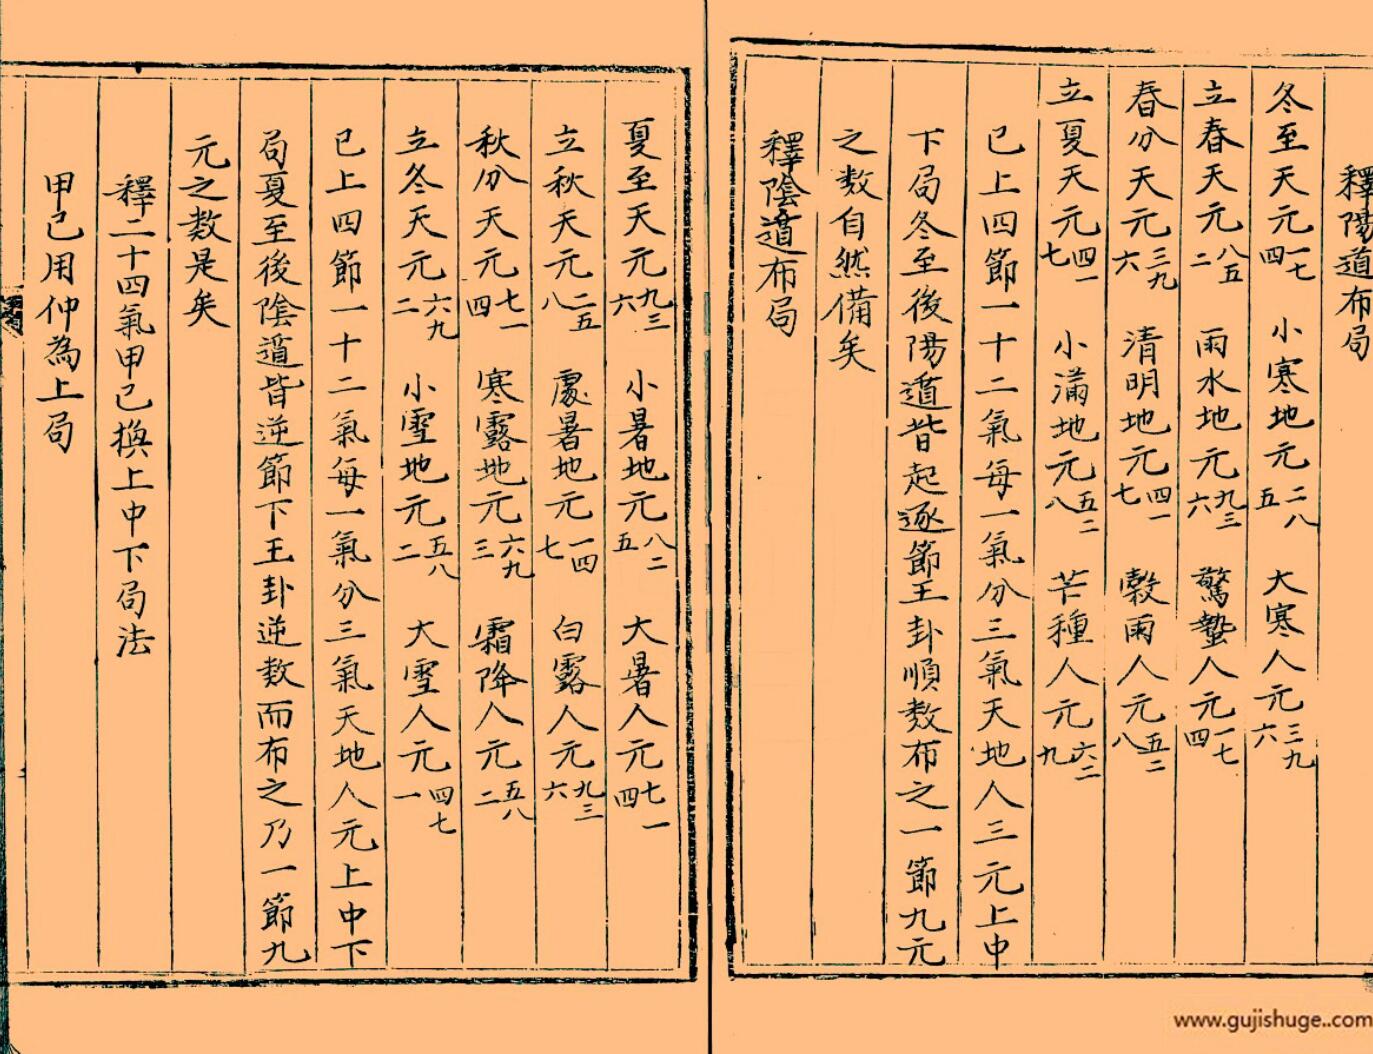 釋陽道布局
冬至天元一七四　小寒地元二八五　大寒人元三九六
立春天元八五二　雨水地元九三六　驚蟄人元一七四
春分天元三九六　清明地元四一七　穀雨人元五二八
立夏天元四一七　小滿地元五二八　芒種人元六二九
已上四節一十二氣每一氣分三氣天地人三元上中
下局冬至後陽遁皆起逐節王卦順数布之一節九元
之数自然備矣
釋陰道布局
夏至天元九三六　小暑地元八二五　大暑人元七一四
立秋天元二五八　處暑地元一四七　白露人元九三六
秋分天元七一四　寒露地元六九三　霜降人元五八二
立冬天元六九二　小雪地元五八二　大雪人元四七一
已上四節一十二氣每一氣分三氣天地人元上中下
局夏至後陰遁皆逆節下王卦逆数而布之乃一節九
元之数是矣
釋二十四氣甲己換上中下局法
甲己用仲為上局
www.gujishuge..com